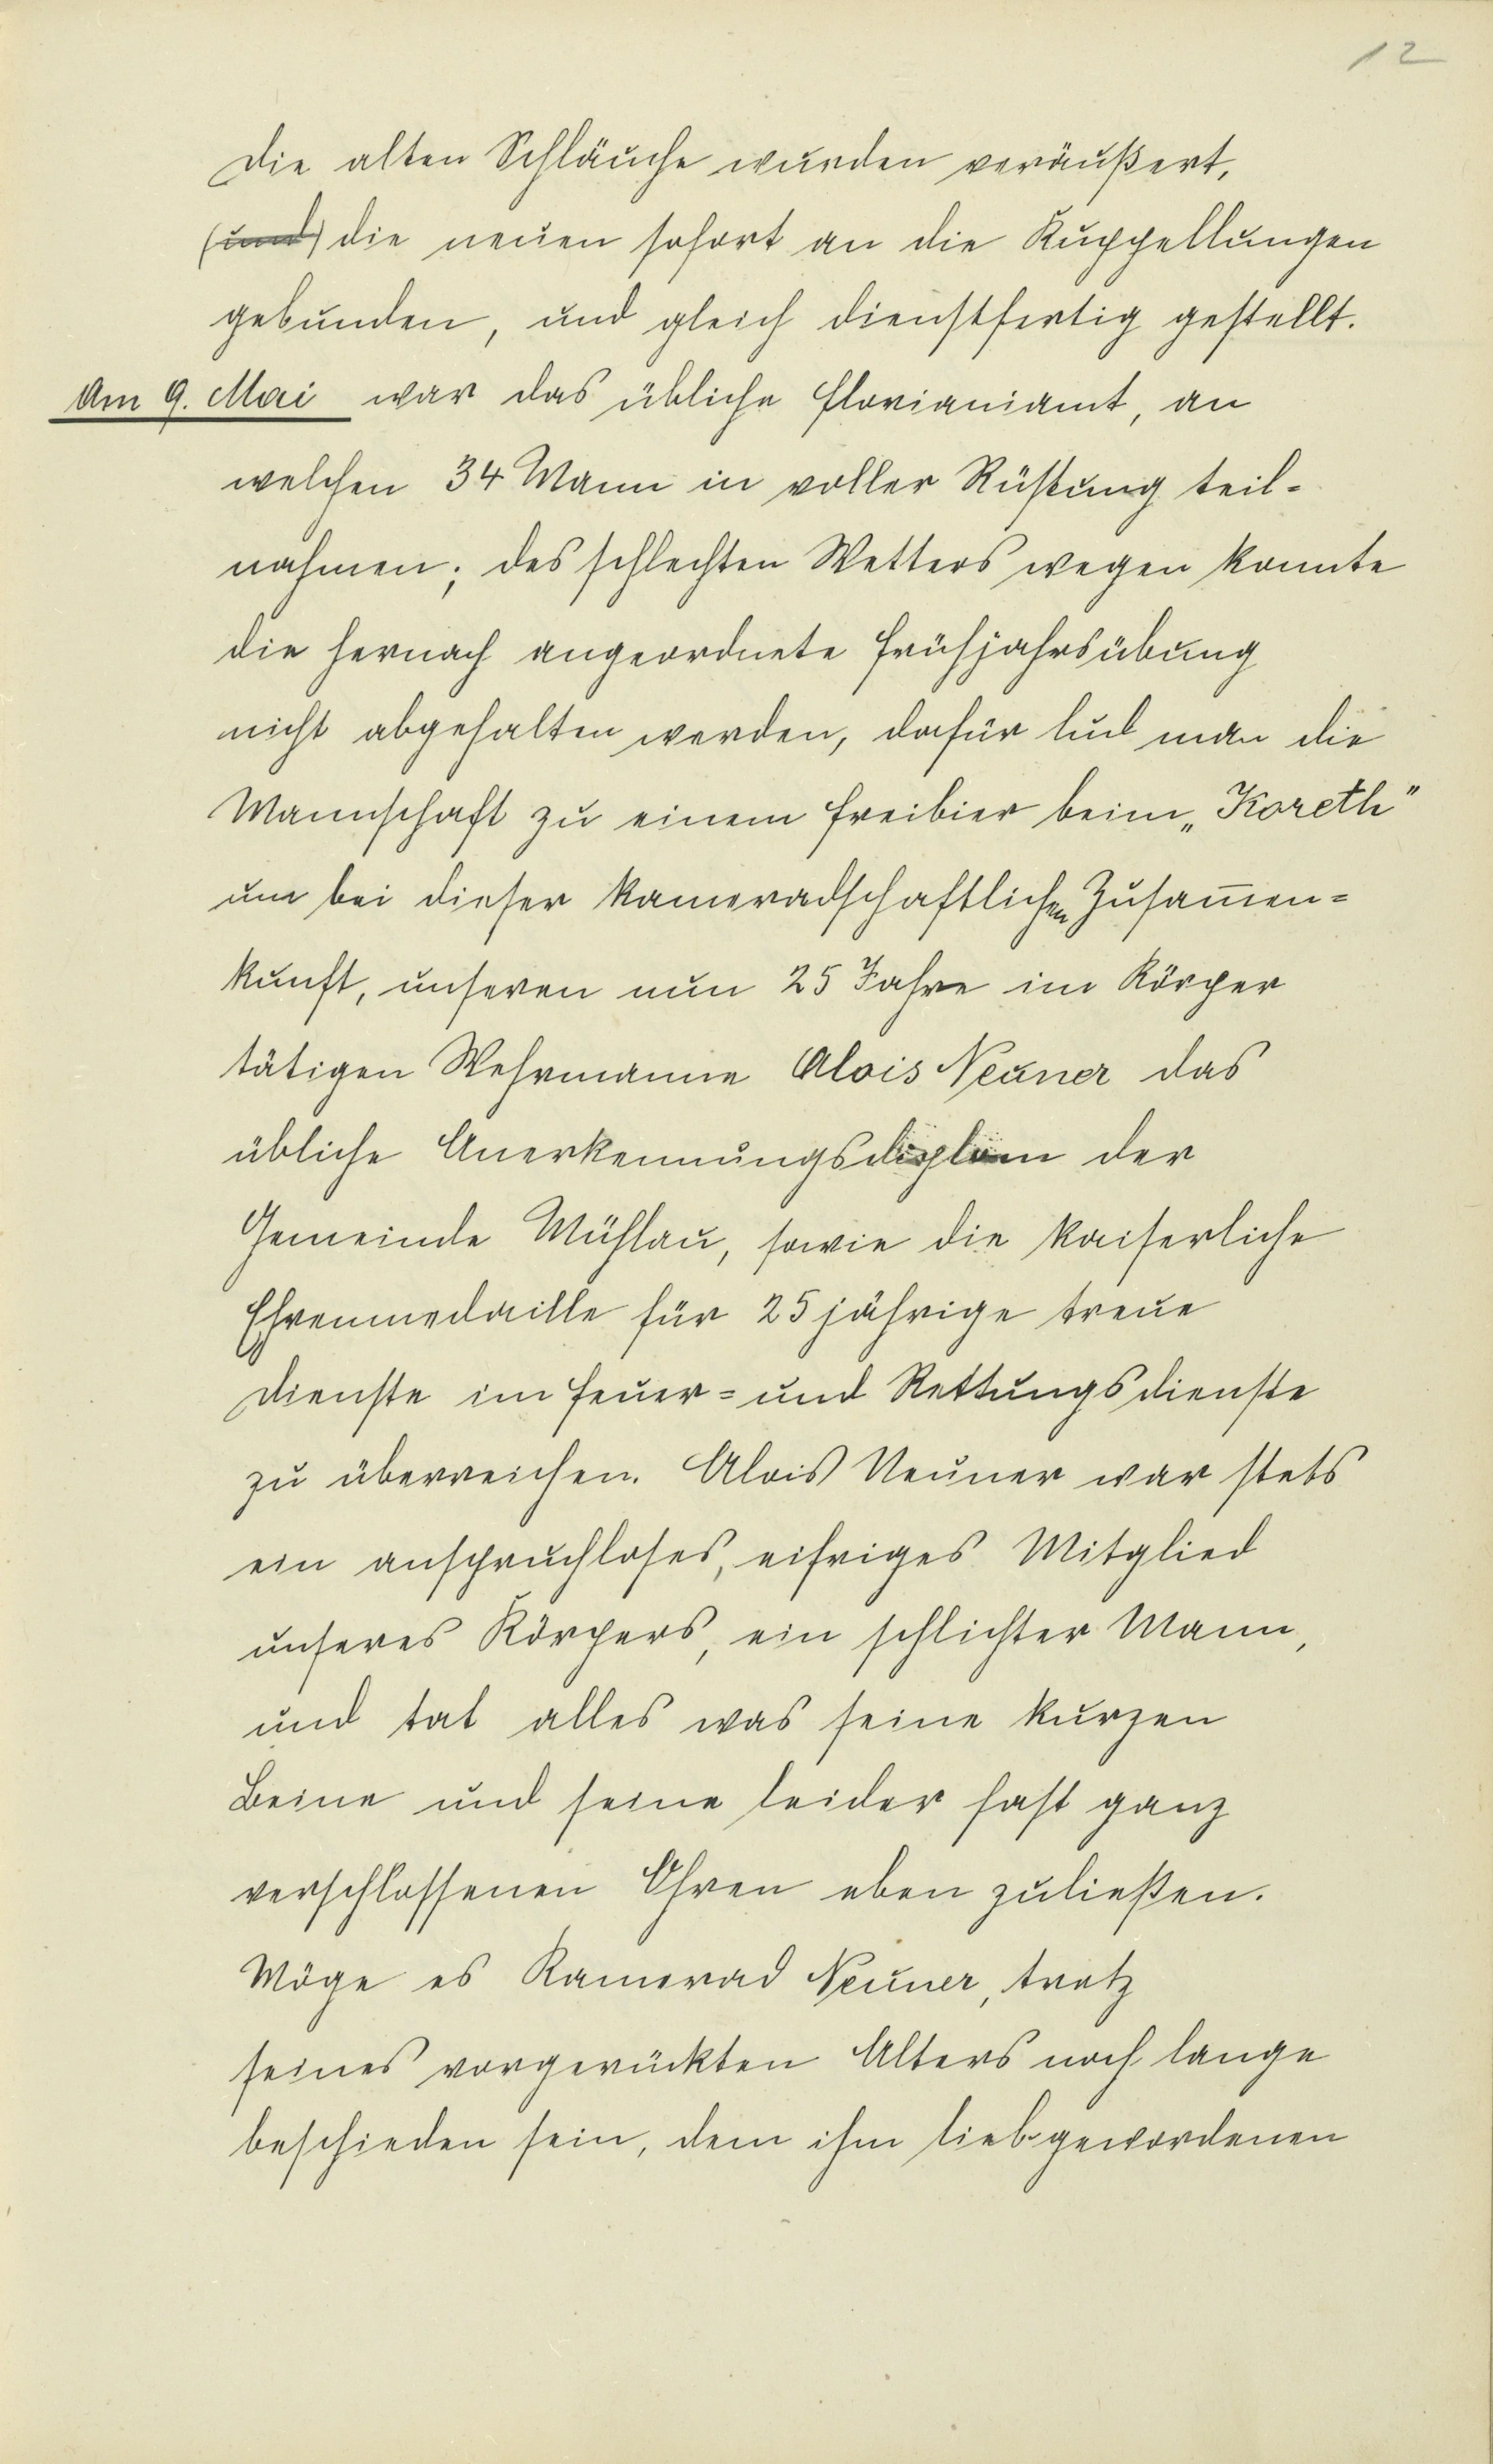 12
Die alten Schläuche wurden veräußert,
(und) die neuen sofort an die Kuppellungen
gebunden, und gleich dienstfertig gestellt.
Am 9. Mai war das übliche Florianiamt, an
welchen 34 Mann in voller Rüstung teil=
nahmen; des schlechten Wetters wegen konnte
die hernach angeordnete Frühjahrsübung
nicht abgehalten werden, dafür lud man die
Mannschaft zu einem Freibier beim „Koreth"
um bei dieser kameradschaftlichen Zusam̅en=
kunft, unseren nun 25 Jahre im Körper
tätigen Wehrmanne Alois Neuner das
übliche Anerkennungsdiplom der
Gemeinde Mühlau, sowie die kaiserliche
Ehrenmedaille für 25 jährige treue
Dienste im Feuer= und Rettungsdienste
zu überreichen. Alois Neuner war stets
ein anspruchloses, eifriges Mitglied
unseres Körpers, ein schlichter Mann,
und tat alles was seine kurzen
Beine und seine leider fast ganz
verschlossenen Ohren eben zuließen.
Möge es Kamerad Neuner, trotz
seines vorgerückten Alters noch lange
beschieden sein, dem ihm liebgewordenen